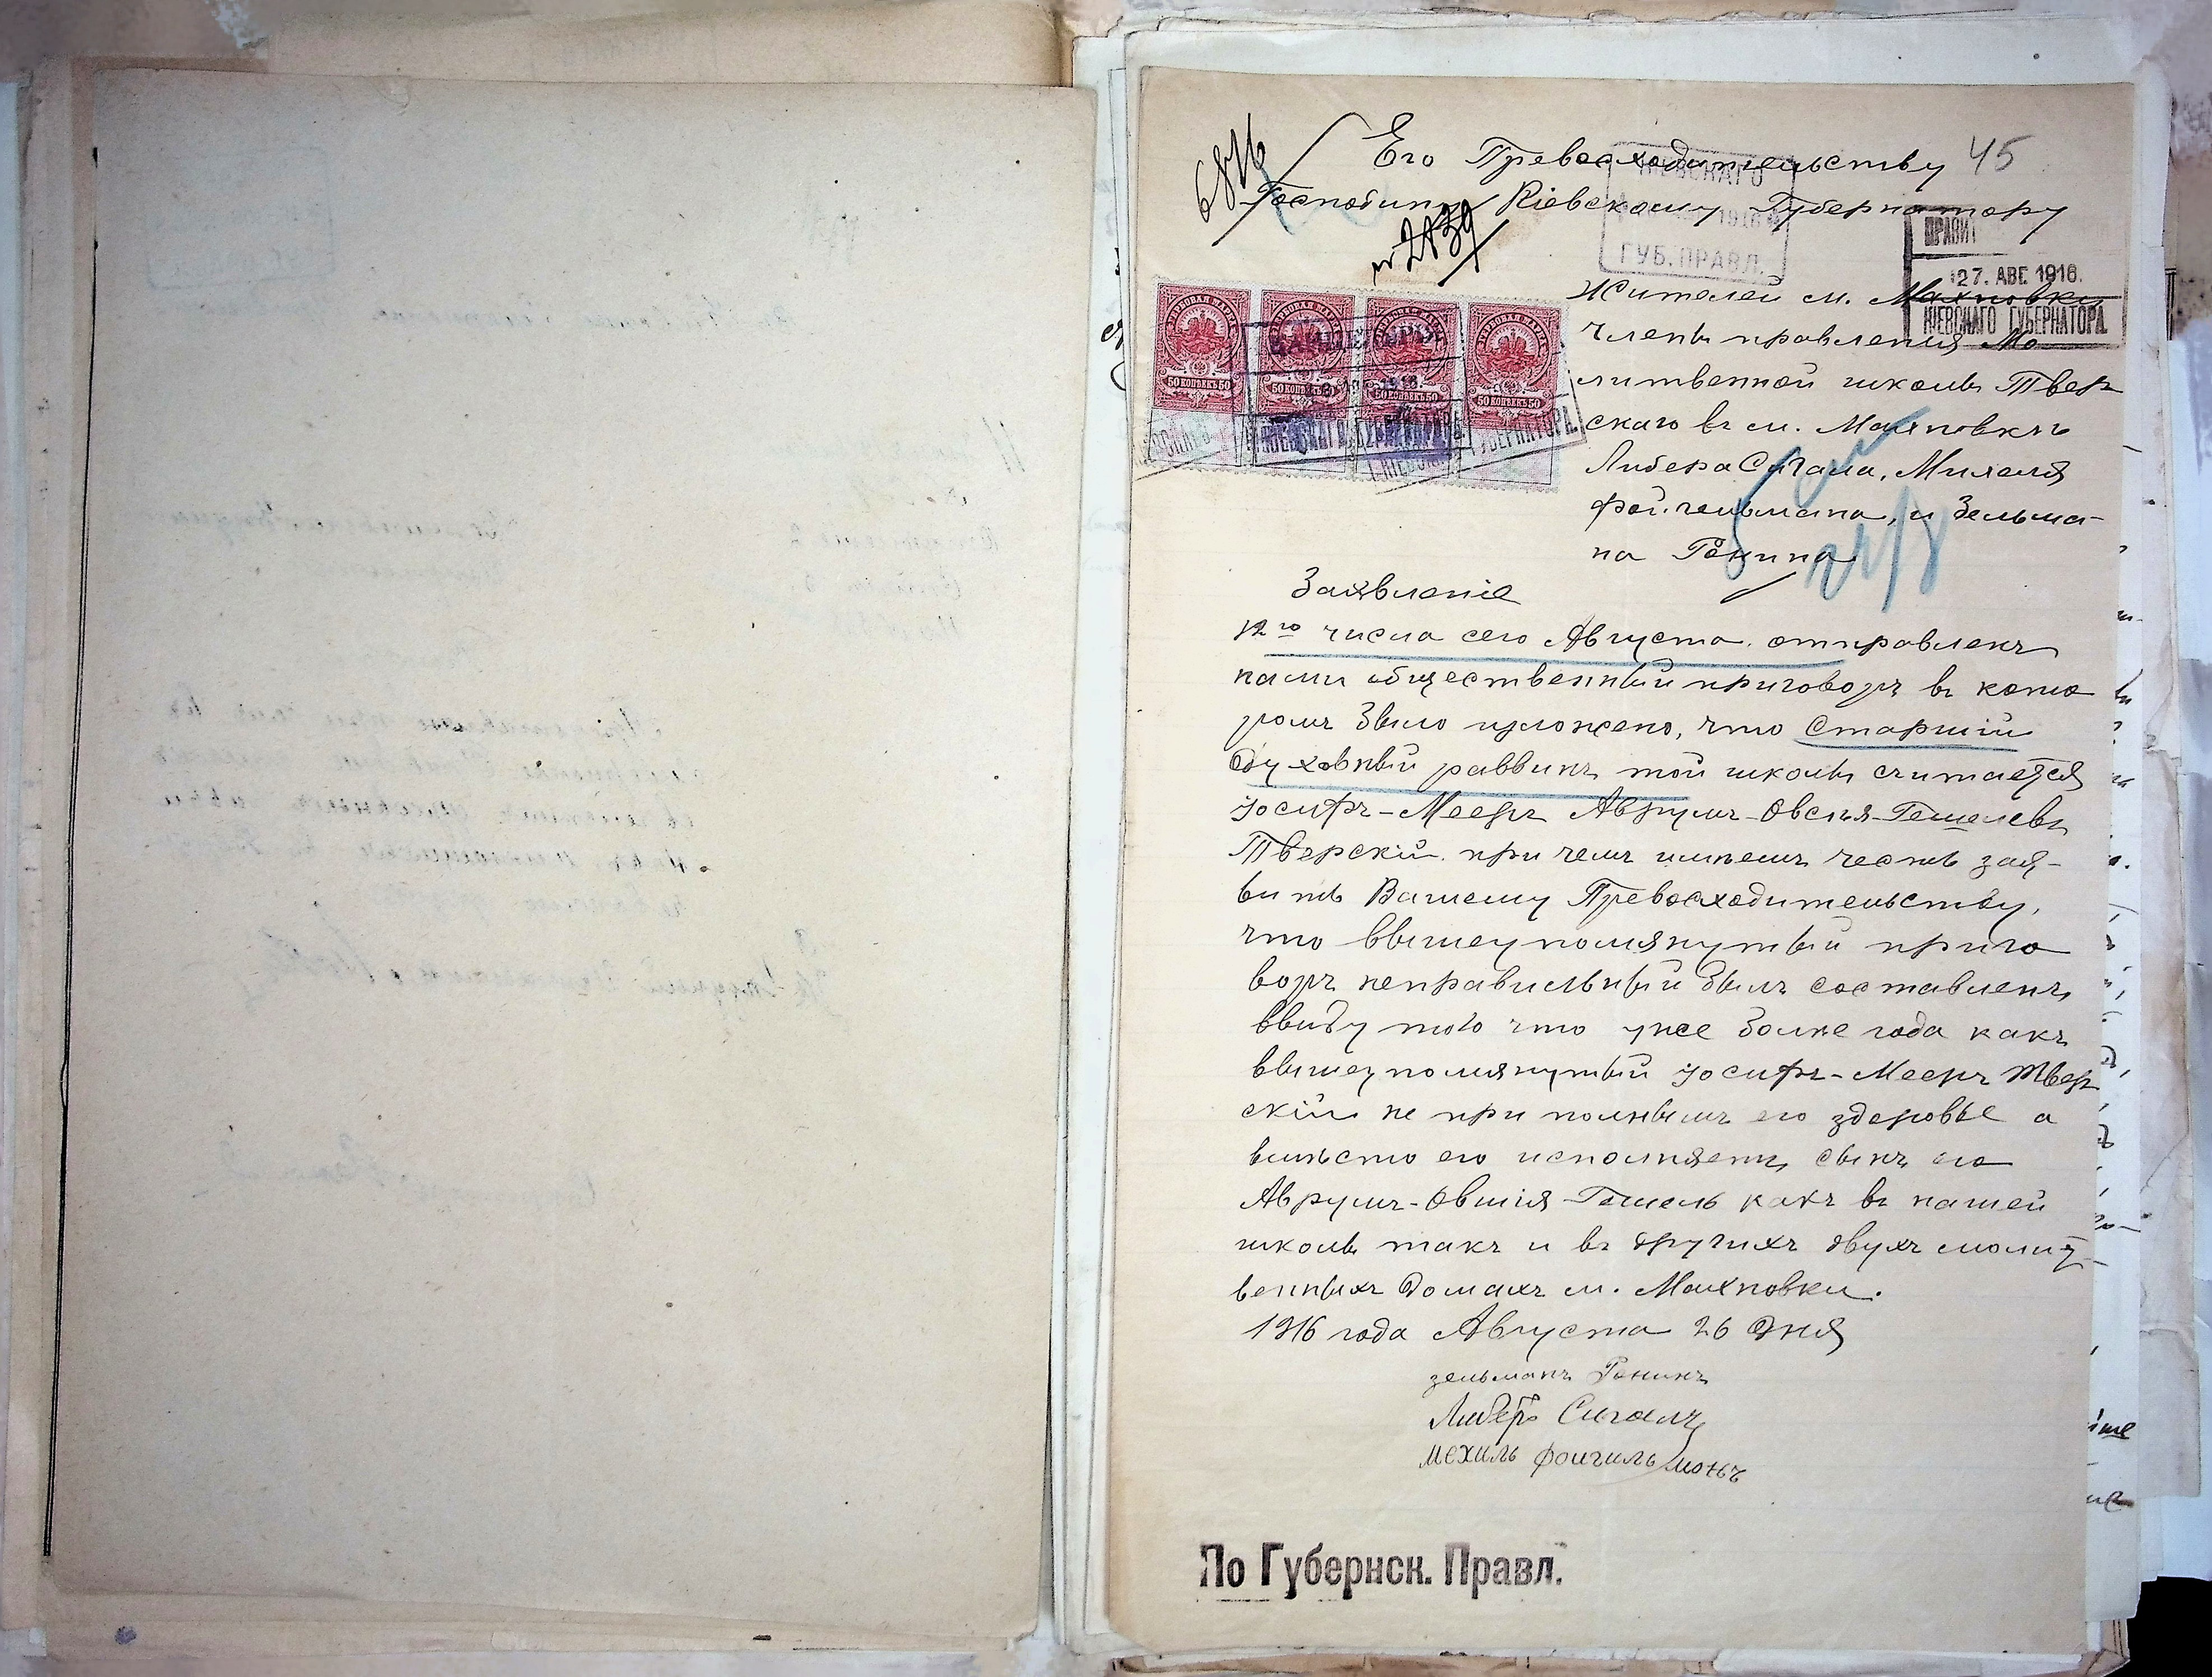 45
6816
Его Превосходительству
Господину Кіевскому Губернатору
№ 2839
КІЕВСКАГО
ГУБ. ПРАВЛ.
27. АВГ. 1916.
КІЕВСКАГО ГУБЕРНАТОРА.
50 КОПѢЕКЪ 50
50 КОПѢЕКЪ 50
50 КОПѢЕКЪ 50
50 КОПѢЕКЪ 50
Жителей м. Махновки
члены правленія Мо
литвенной школы Твер
скаго въ м. Махновкѣ
Либера Сигала, Михеля
Фойгельмана, и Зельма-
на Ронина
Заявленіе
12го числа сего Августа отправленъ
нами общественный приговоръ въ кото
ромъ было изложено, что Старшій
духовный раввинъ той школы считается
Іосифъ-Мееръ Аврумъ-Овсѣя-Гешелевъ
Тверскій при чемъ имѣемъ честь зая-
вить Вашему Превосходительству,
что вышеупомянутый приго
воръ неправильный былъ составленъ
ввиду того что уже болѣе года какъ
вышеупомянутый Іосифъ-Мееръ Твер
скій не при полнымъ его здоровье а
вмѣсто его исполняетъ сынъ его
Аврумъ-Овшія-Гешель какъ въ нашей
школы такъ и въ другихъ двухъ молит-
венныхъ домахъ м. Махновки.
1916 года Августа 26 дня
Зельманъ Ронинъ
Либеръ Сигалъ
Мехиль Фоигильмонъ
По Губернск. Правл.